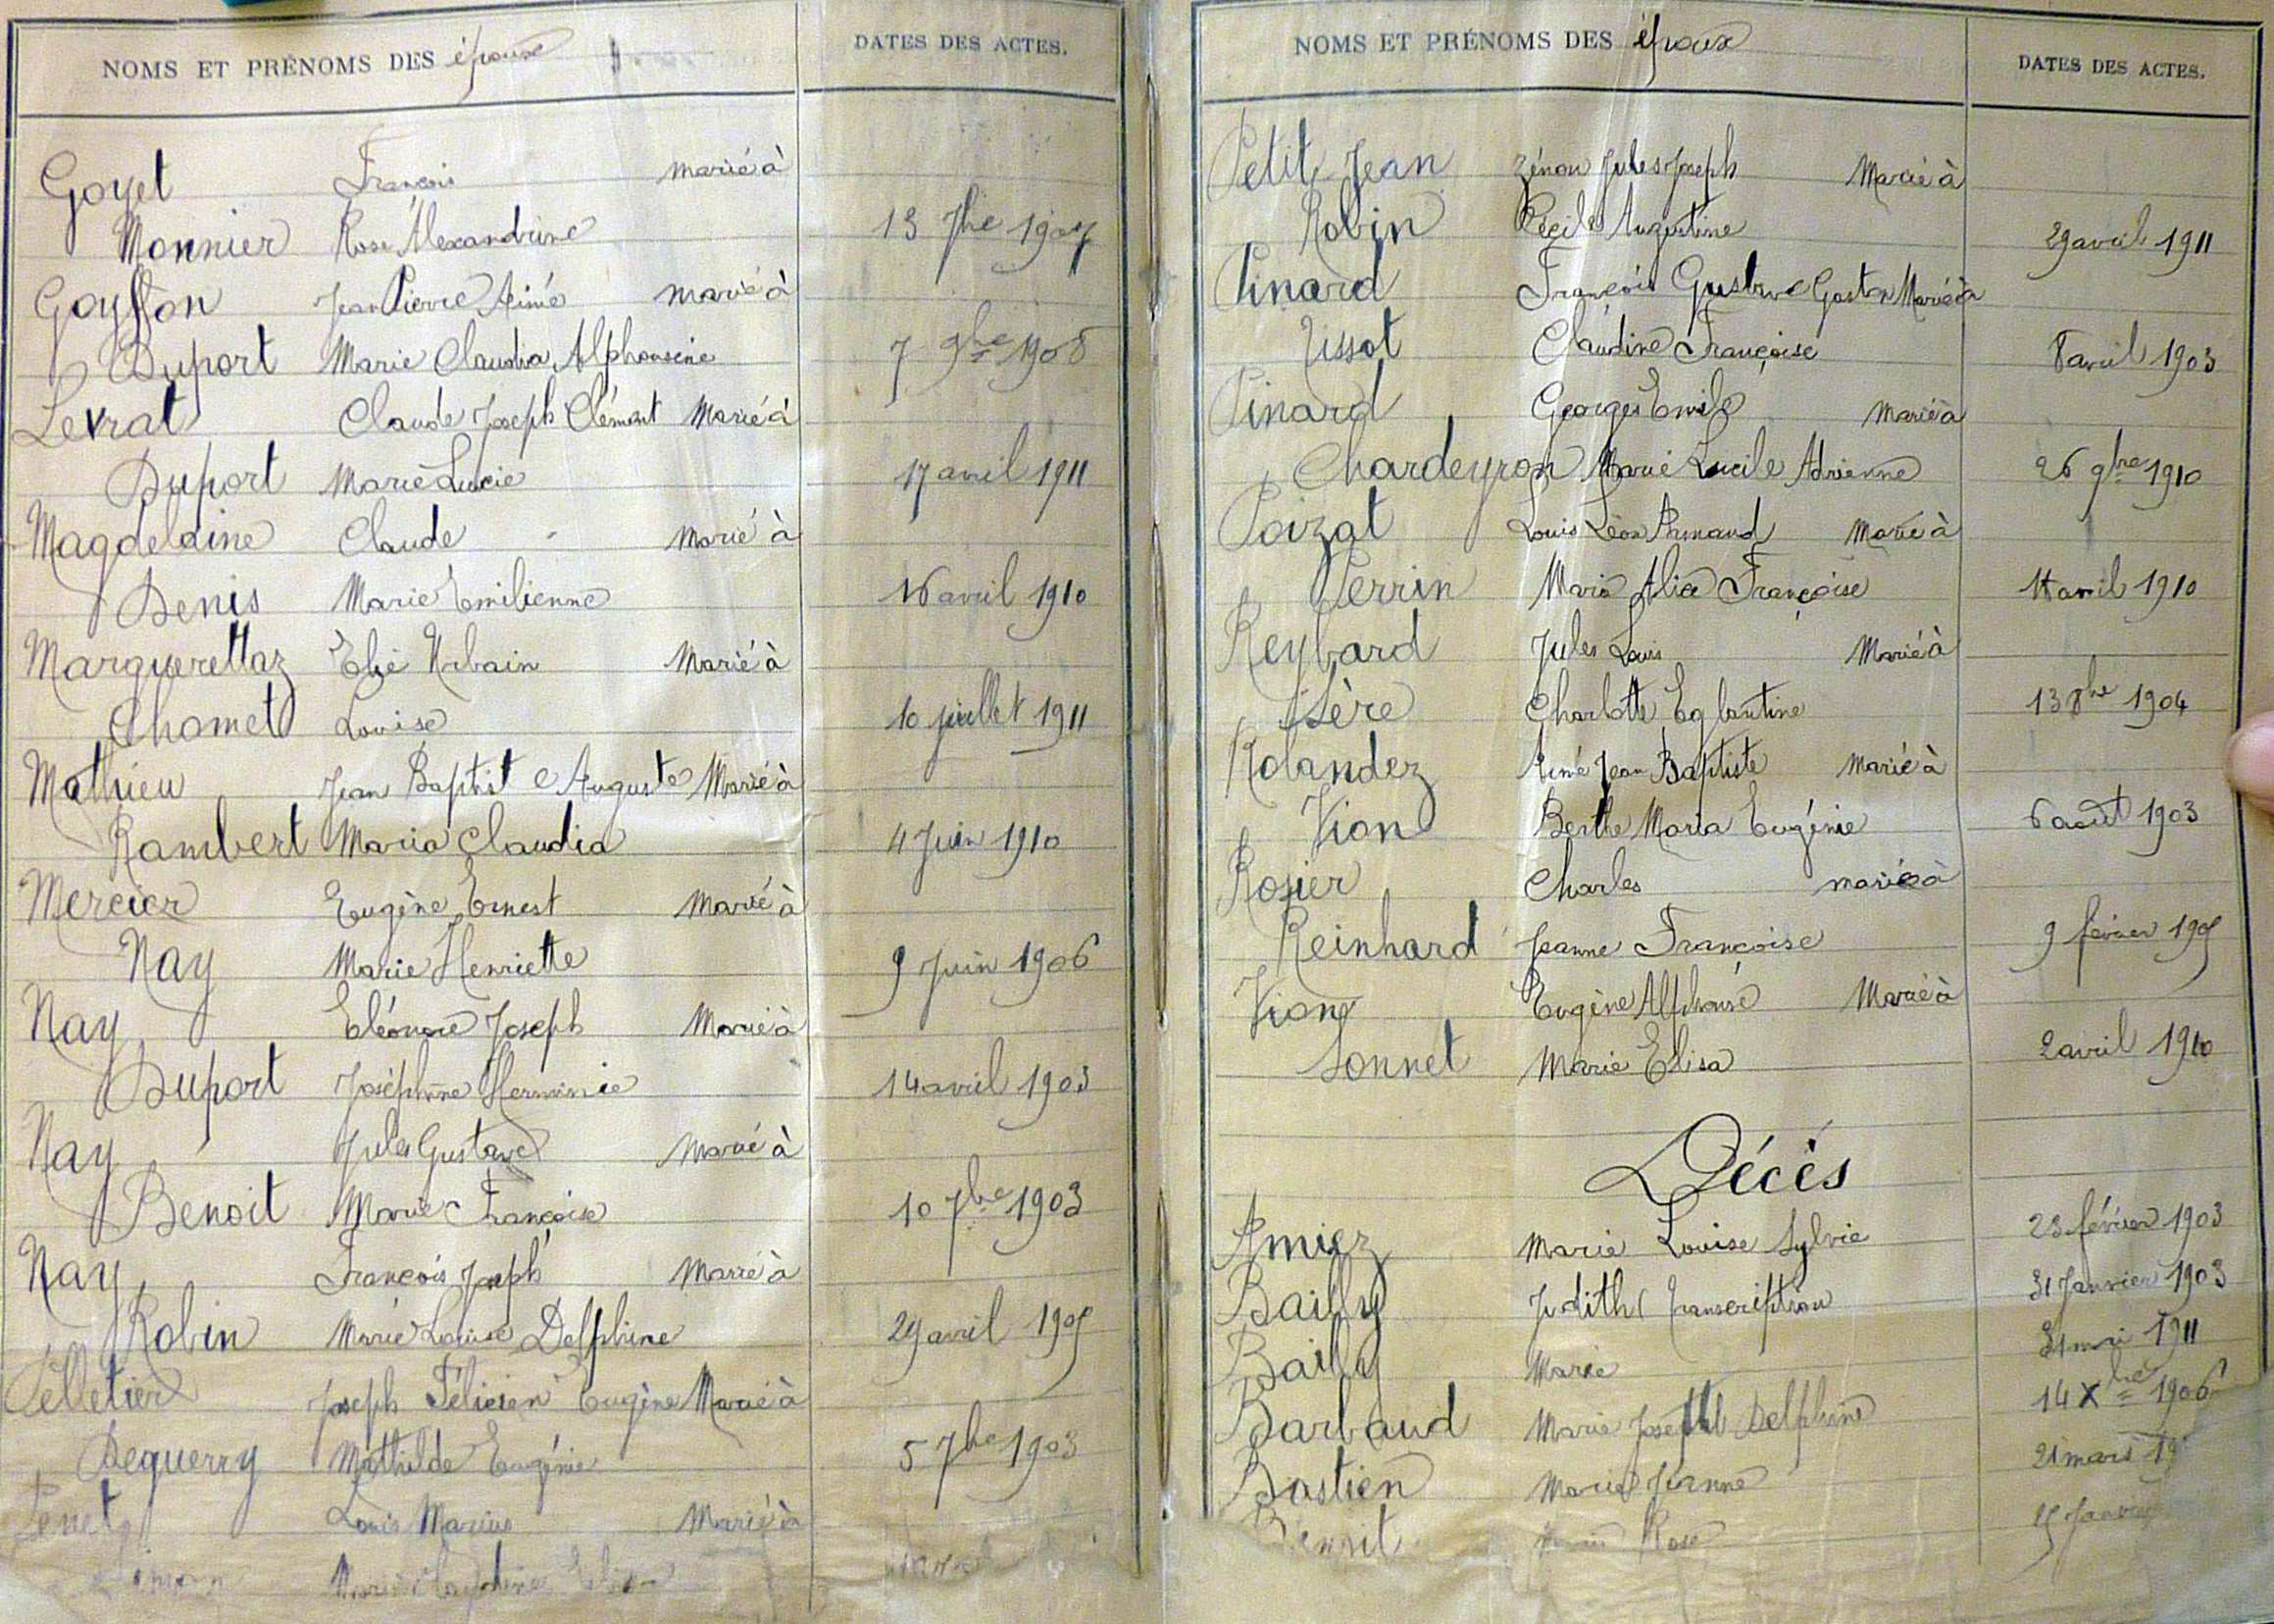 NOMS ET PRÉNOMS DES époux DATES DES ACTES.
Goyet François marié à
Monnier Rose Alexandrine 13 7bre 1907
Goyffon Jean Pierre Aimé marié à
Duport Marie Claudia Alphonsine 7 9bre 1908
Levrat Claude Joseph Clément Marié à
Duport Marie Lucie 17 avril 1911
Magdelaine Claude Marié à
Denis Marie Emilienne 16 avril 1910
Marguerettaz Elie Urbain Marié à
Chomet Louise 10 juillet 1911
Mathieu Jean Baptiste Auguste Marié à
Rambert Maria Claudia 4 Juin 1910
Mercier Eugène Ernest Marié à
Nay Marie Henriette 9 Juin 1906
Nay Eléonore Joseph Marié à
Duport Joséphine Herminie 14 avril 1903
Nay Jules Gustave Marié à
Benoit Marie Françoise 10 7bre 1903
Nay François Joseph Marié à
Robin Marie Louise Delphine 29 avril 1905
Pelletier Joseph Félicien Eugène Marié à
Dequerry Mathilde Eugénie 5 7bre 1903
Penet Louis Marius Marié à
Marie Claudine
NOMS ET PRÉNOMS DES époux DATES DES ACTES.
Petit Jean Zénon Jules Joseph Marié à
Robin Cécile Augustine 29 avril 1911
Pinard François Gustave Gaston Marié à
Tissot Claudine Françoise 8 avril 1903
Pinard Georges Emile Marié à
Chardeyron Marie Lucile Adrienne 26 9bre 1910
Poizat Louis Léon Armand Marié à
Perrin Maria Alice Françoise avril 1910
Reybard Jules Louis Marié à
Sère Charlotte Eglantine 13 8bre 1904
Rolandez Aimé Jean Baptiste Marié à
Vion Berthe Maria Eugénie 6 août 1903
Rosier Charles marié à
Reinhard Jeanne Françoise 9 février 1905
Vion Eugène Alphonse Marié à
Sonnet Marie Elisa 2 avril 1910
Décès
Amiez Marie Louise Sylvie 23 février 1903
Bailly Judith (Transcription 31 Janvier 1903
Bailly Marie 31 mai 1911
Barbaud Marie Joseph Delphine 14 Xbre 1906
Bastien Marie Jeanne 21 mars 19
Benoit Rose 15 Janvier